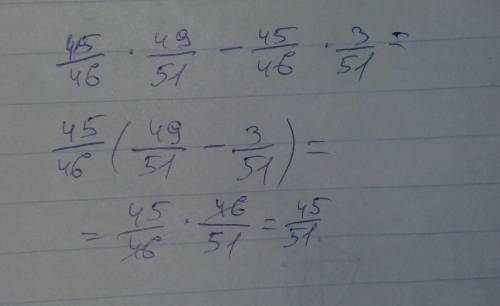 45/46 · 49/51 − 45/46 · 3/51 =
45/46 (49/51 − 3/51) =
= 45/46 · 46/51 = 45/51